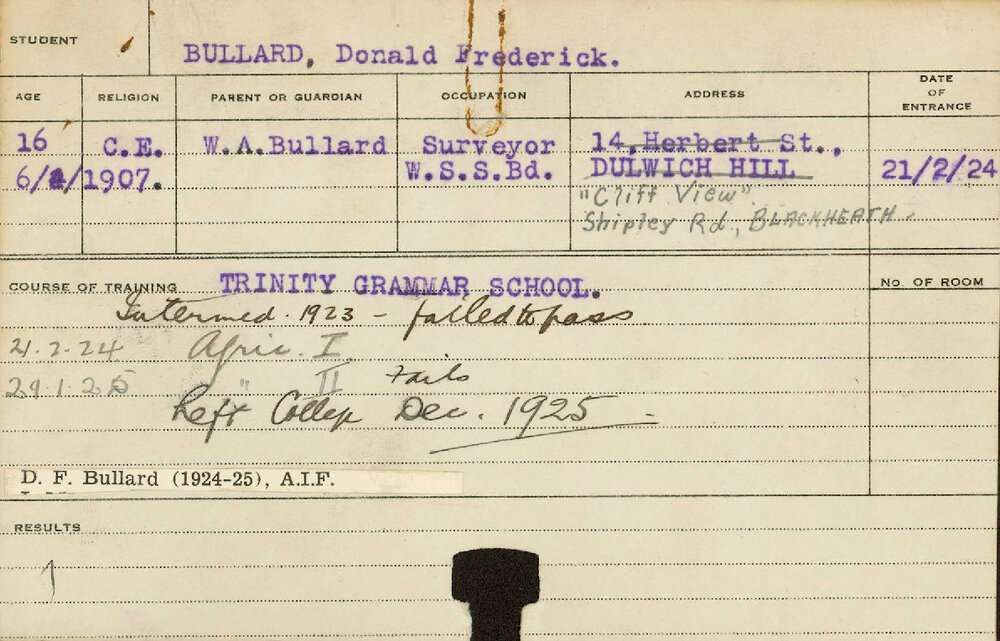 STUDENT
BULLARD, Donald Frederick.
AGE RELIGION PARENT OR GUARDIAN OCCUPATION ADDRESS DATE OF ENTRANCE
16 C.E. W.A.Bullard Surveyor 14, Herbert St.,
6/ /1907. W.S.S.Bd. DULWICH HILL 21/2/24
"Cliff View"
Shipley Rd., BLACKHEATH.
COURSE OF TRAINING TRINITY GRAMMAR SCHOOL. No. OF ROOM
Intermed. 1923 - failed to pass
21.2.24 Agric. I.
29.1.25 " II Fails
Left College Dec. 1925 -
D. F. Bullard (1924-25), A.I.F.
RESULTS